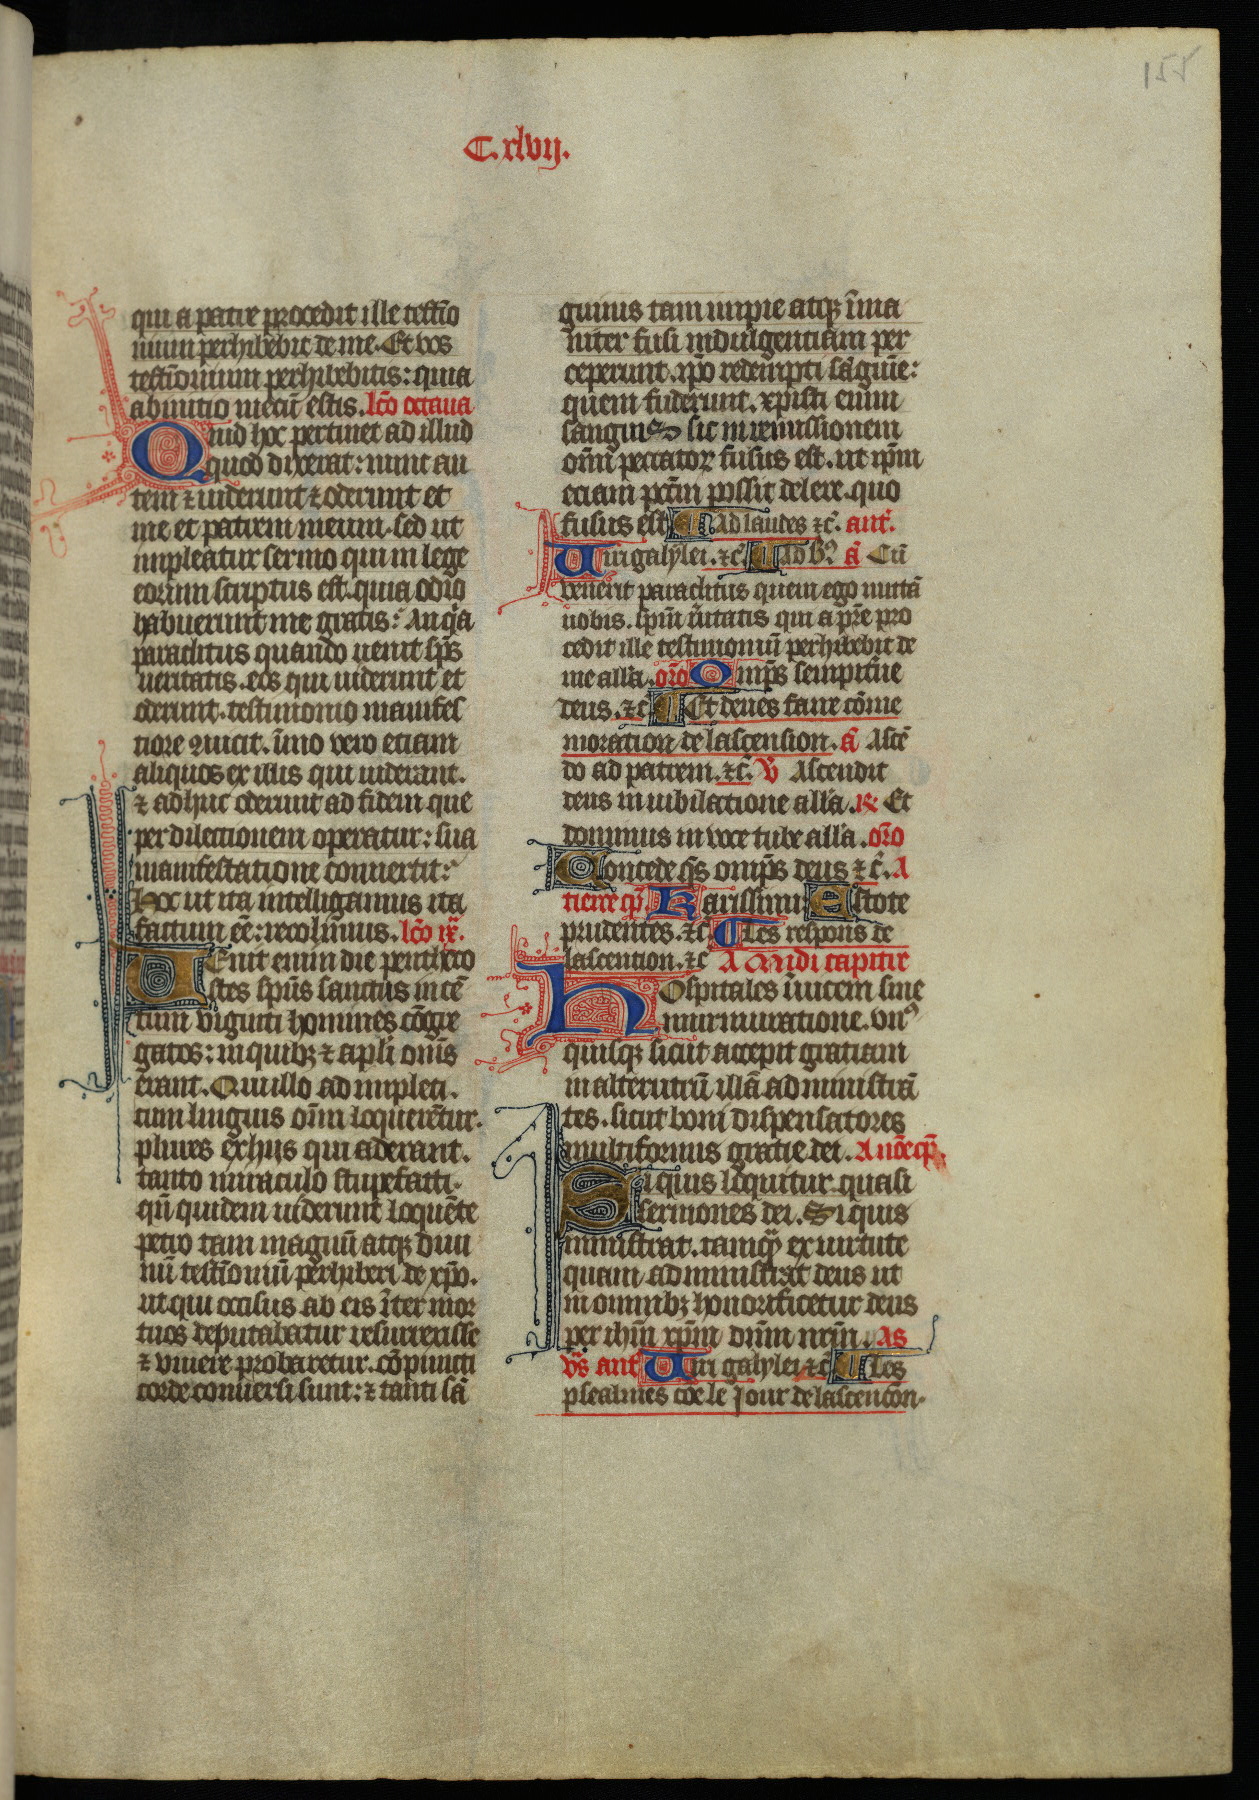 155
C. xlvij.
qui a patre procedit ille testi̅o
nium perhibebit de me. Et vos
testi̅onium perhibebitis: quia
ab initio mecu̅ estis. lc̅o octaua
Quid hoc pertinet ad illud
quod dixerat: nunc au
tem ⁊ uiderunt ⁊ oderunt et
me et patrem meum. sed ut
impleatur sermo qui in lege
eorum scriptus est. quia odio
habuerunt me gratis: An q̅a
paraclitus quando uenit sp̅s
ueritatis. eos qui uiderunt et
oderunt. testimonio manifes
tiore
ȷ̅mo vero etiam
aliquos ex illis qui uiderant.
⁊ adhuc oderunt ad fidem que
per dilectionem operatur: sua
manifestatione conuertit:
Hoc ut ita intelligamus ita
factum ee̅: recolimus. lc̅o ix.
Uenit enim die pentheco
stes sp̅us sanctus in ce̅
tum viginti homines co̅gre
gatos: in quibꝫ ⁊ apl̅i om̅s
erant. Qui illo adimpleti.
cum linguis om̅m loquere̅tur.
plures ex hijs qui aderant.
tanto miraculo stupefacti.
qn̅ quidem uiderunt loque̅te
petro tam magnu̅ atqꝫ diui
nu̅ testi̅oniu̅ perhiberi de xp̅o.
ut qui occisus ab eis i̅ter mor
tuos deputabatur resurrexisse
⁊ viuere probaretur. co̅puncti
corde conuersi sunt: ⁊ tanti sa̅
guinis tam impie atqꝫ i̅ma
niter fusi indulgentiam per
ceperunt. ip̅o redempti sa̅guie̅:
quem fuderunt. xpisti enim
sanguis sic in remissionem
om̅i peccatoꝝ fusus est. ut ip̅m
eciam pctm̅ possit delere. quo
fusus est ¶ Ad laudes ⁊c̅. ant̅.
Uiri galylei. ⁊c̅. ¶ ad b̅n̅ a̅ Cu̅
venerit paraclitus quem ego mitta̅
uobis. spm̅ u̅itatis qui a pr̅e pro
cedit ille testimoniu̅ perhibebit de
me all̅a. or̅o Omp̅s sempit̅ne
deus. ⁊c̅ ¶ Et deues faire co̅me
moration de lascension. a̅ Asce̅
do ad patrem. ⁊c̅. v̅ Ascendit
deus in iubilatione all̅a. ꝶ Et
dominus in voce tube all̅a. or̅o
Concede q̅s omp̅s deus ⁊ c̅. A
tierce cp̅. Karissimi Estote
prudentes. ⁊c̅. ¶ Les respons de
lascention. ⁊c̅ A Midi capitre
Hospitales i̅uicem sine
murmuratione. vnꝰ
quisqꝫ sicut accepit gratiam
in alterutru̅ illa̅ administra̅
tes. sicut boni dispensatores
multiformis gratie dei. A no̅e cp̅.
Si quis loquitur quasi
sermones dei. Si quis
ministrat. tamq̅ ex uirtute
quam administrat deus ut
in omnibꝫ honorificetur deus
per ihm̅ xpm̅ dn̅m nr̅m. As
v̅s̅ ant̅ Uiri galylei ⁊c̅ ¶ Les
psealmes co̅e le jour de lascencon.